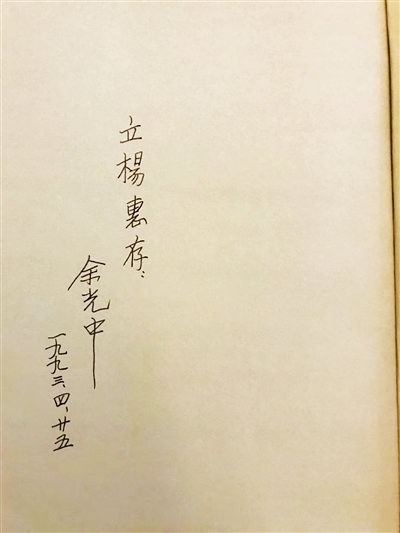 立楊惠存:
余光中
一九九三、四、廿五